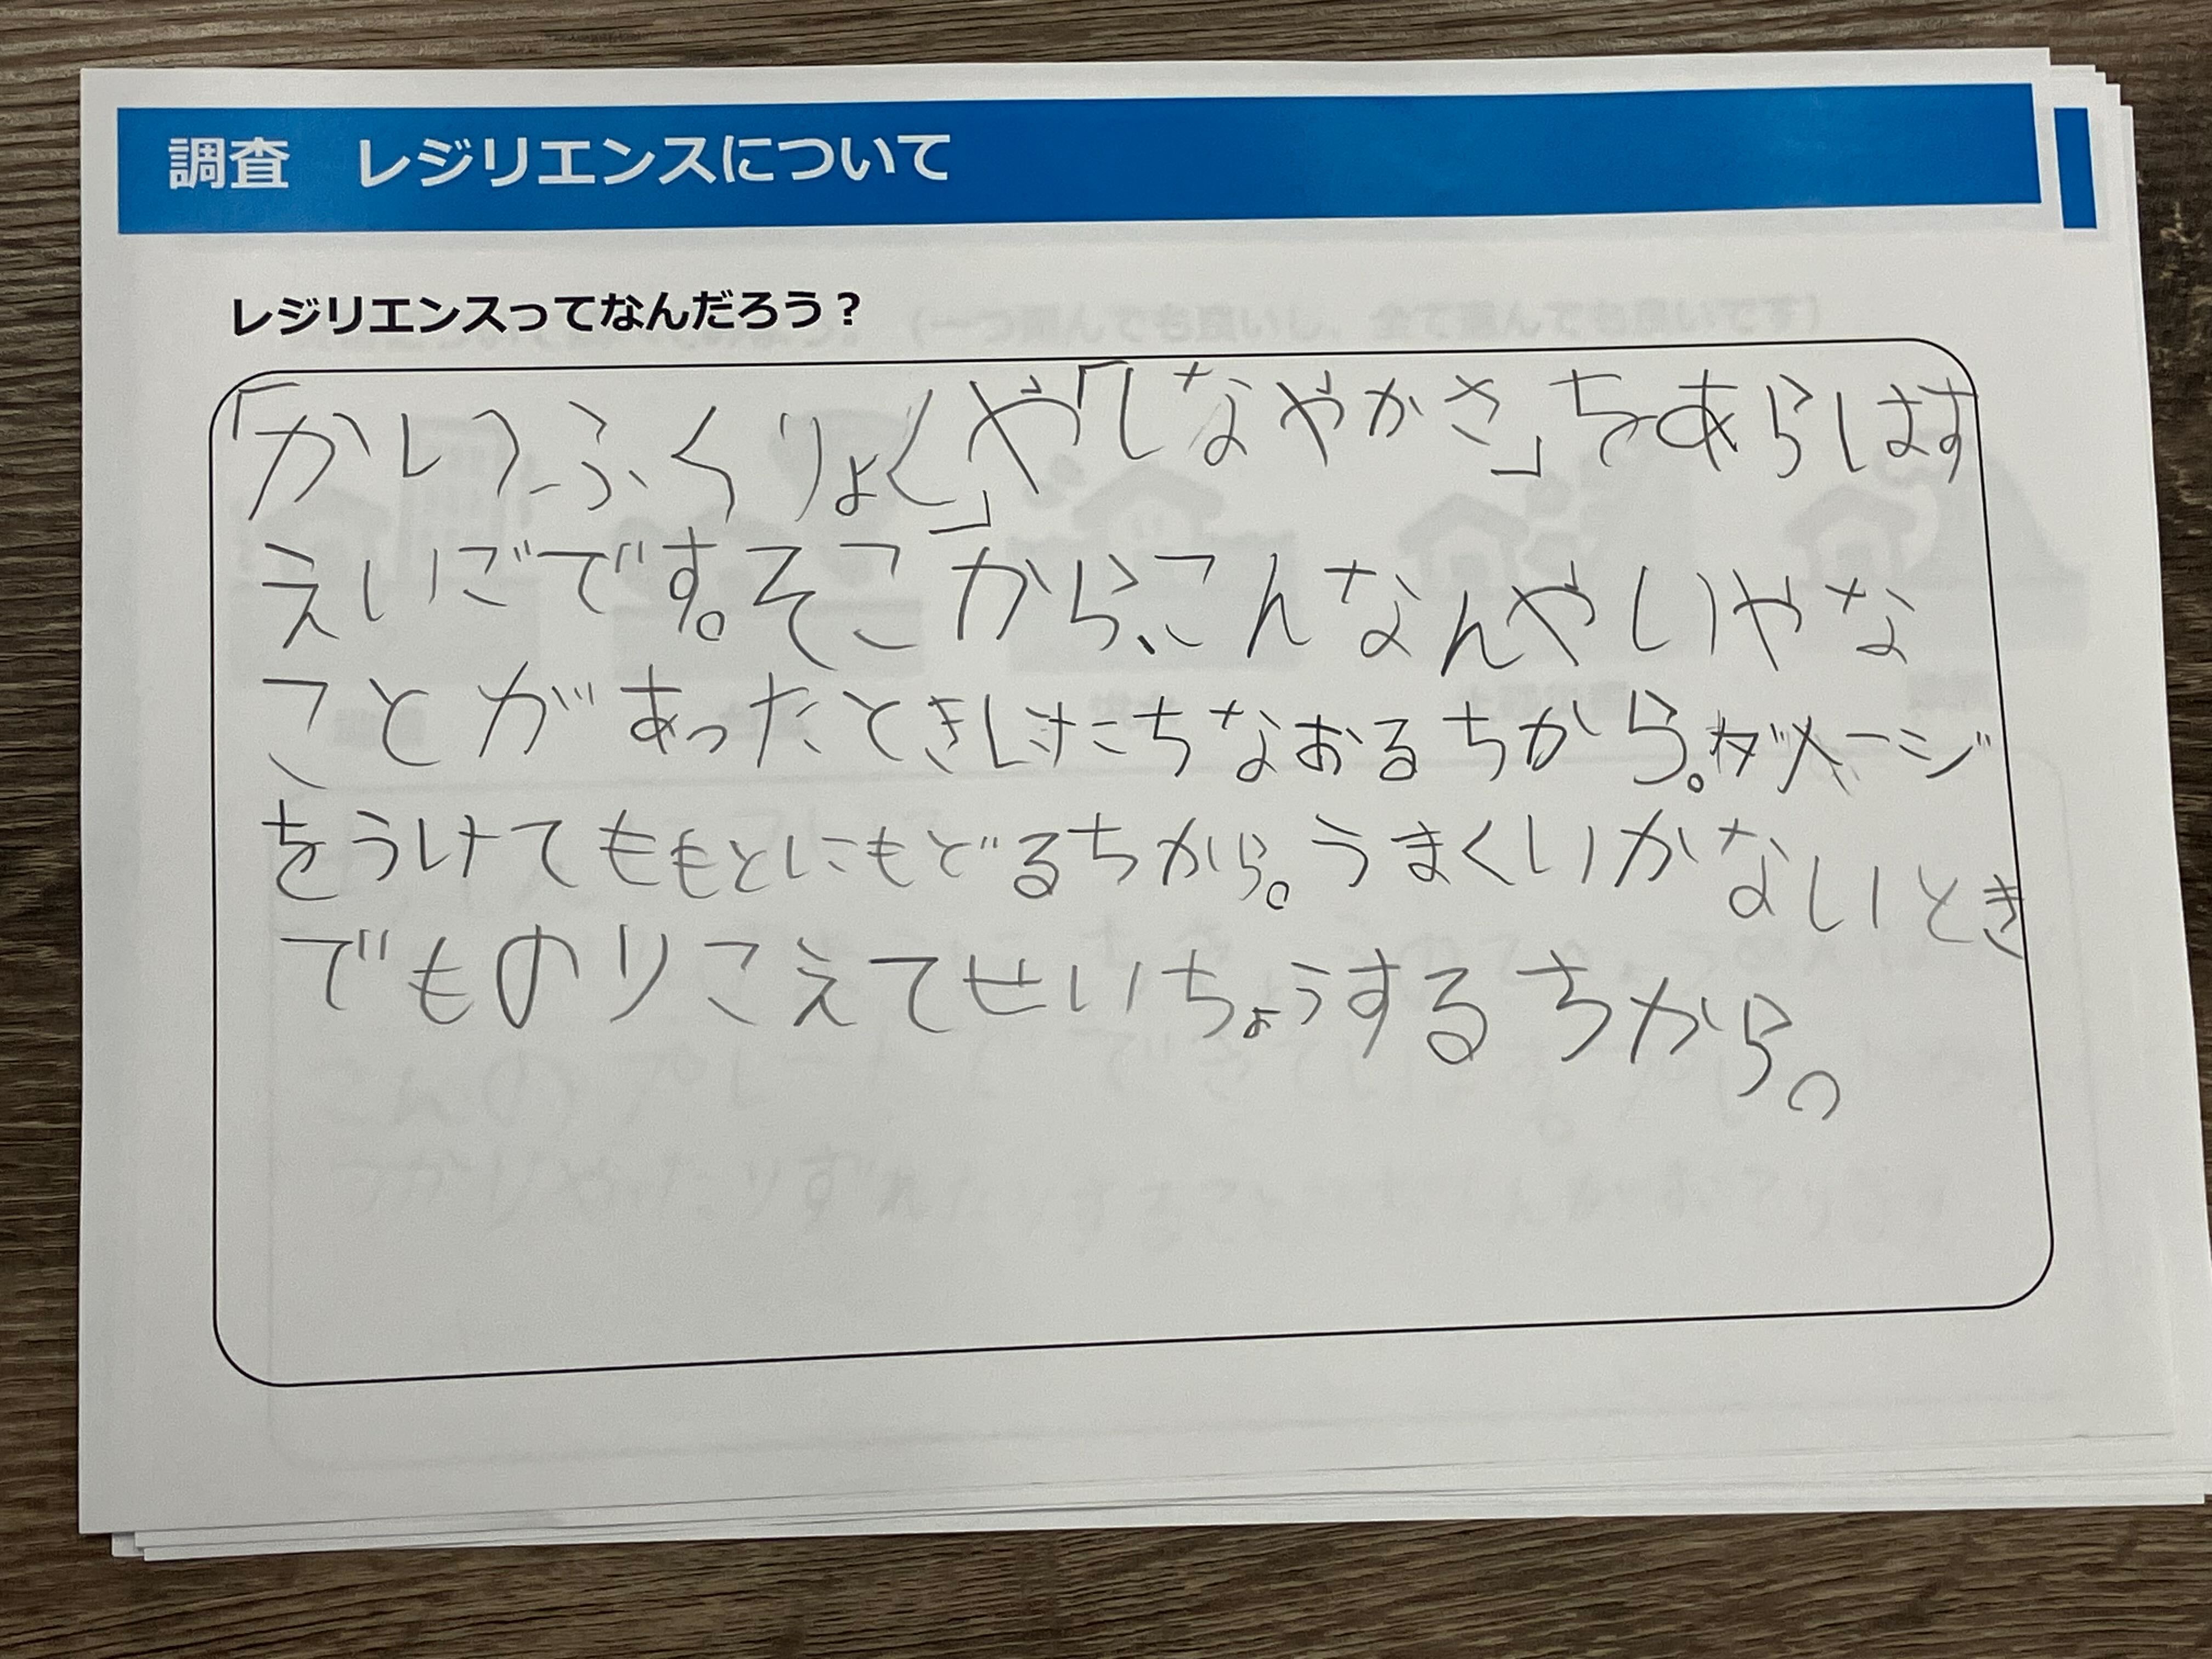 調査　レジリエンスについて
レジリエンスってなんだろう？
「かいふくりょく」や「しなやかさ」をあらはす
えいごです。そこから、こんなんやいやな
ことがあったときにたちなおるちから。ダメージ
をうけてももとにもどるちから。うまくいかないとき
でものりこえてせいちょうするちから。